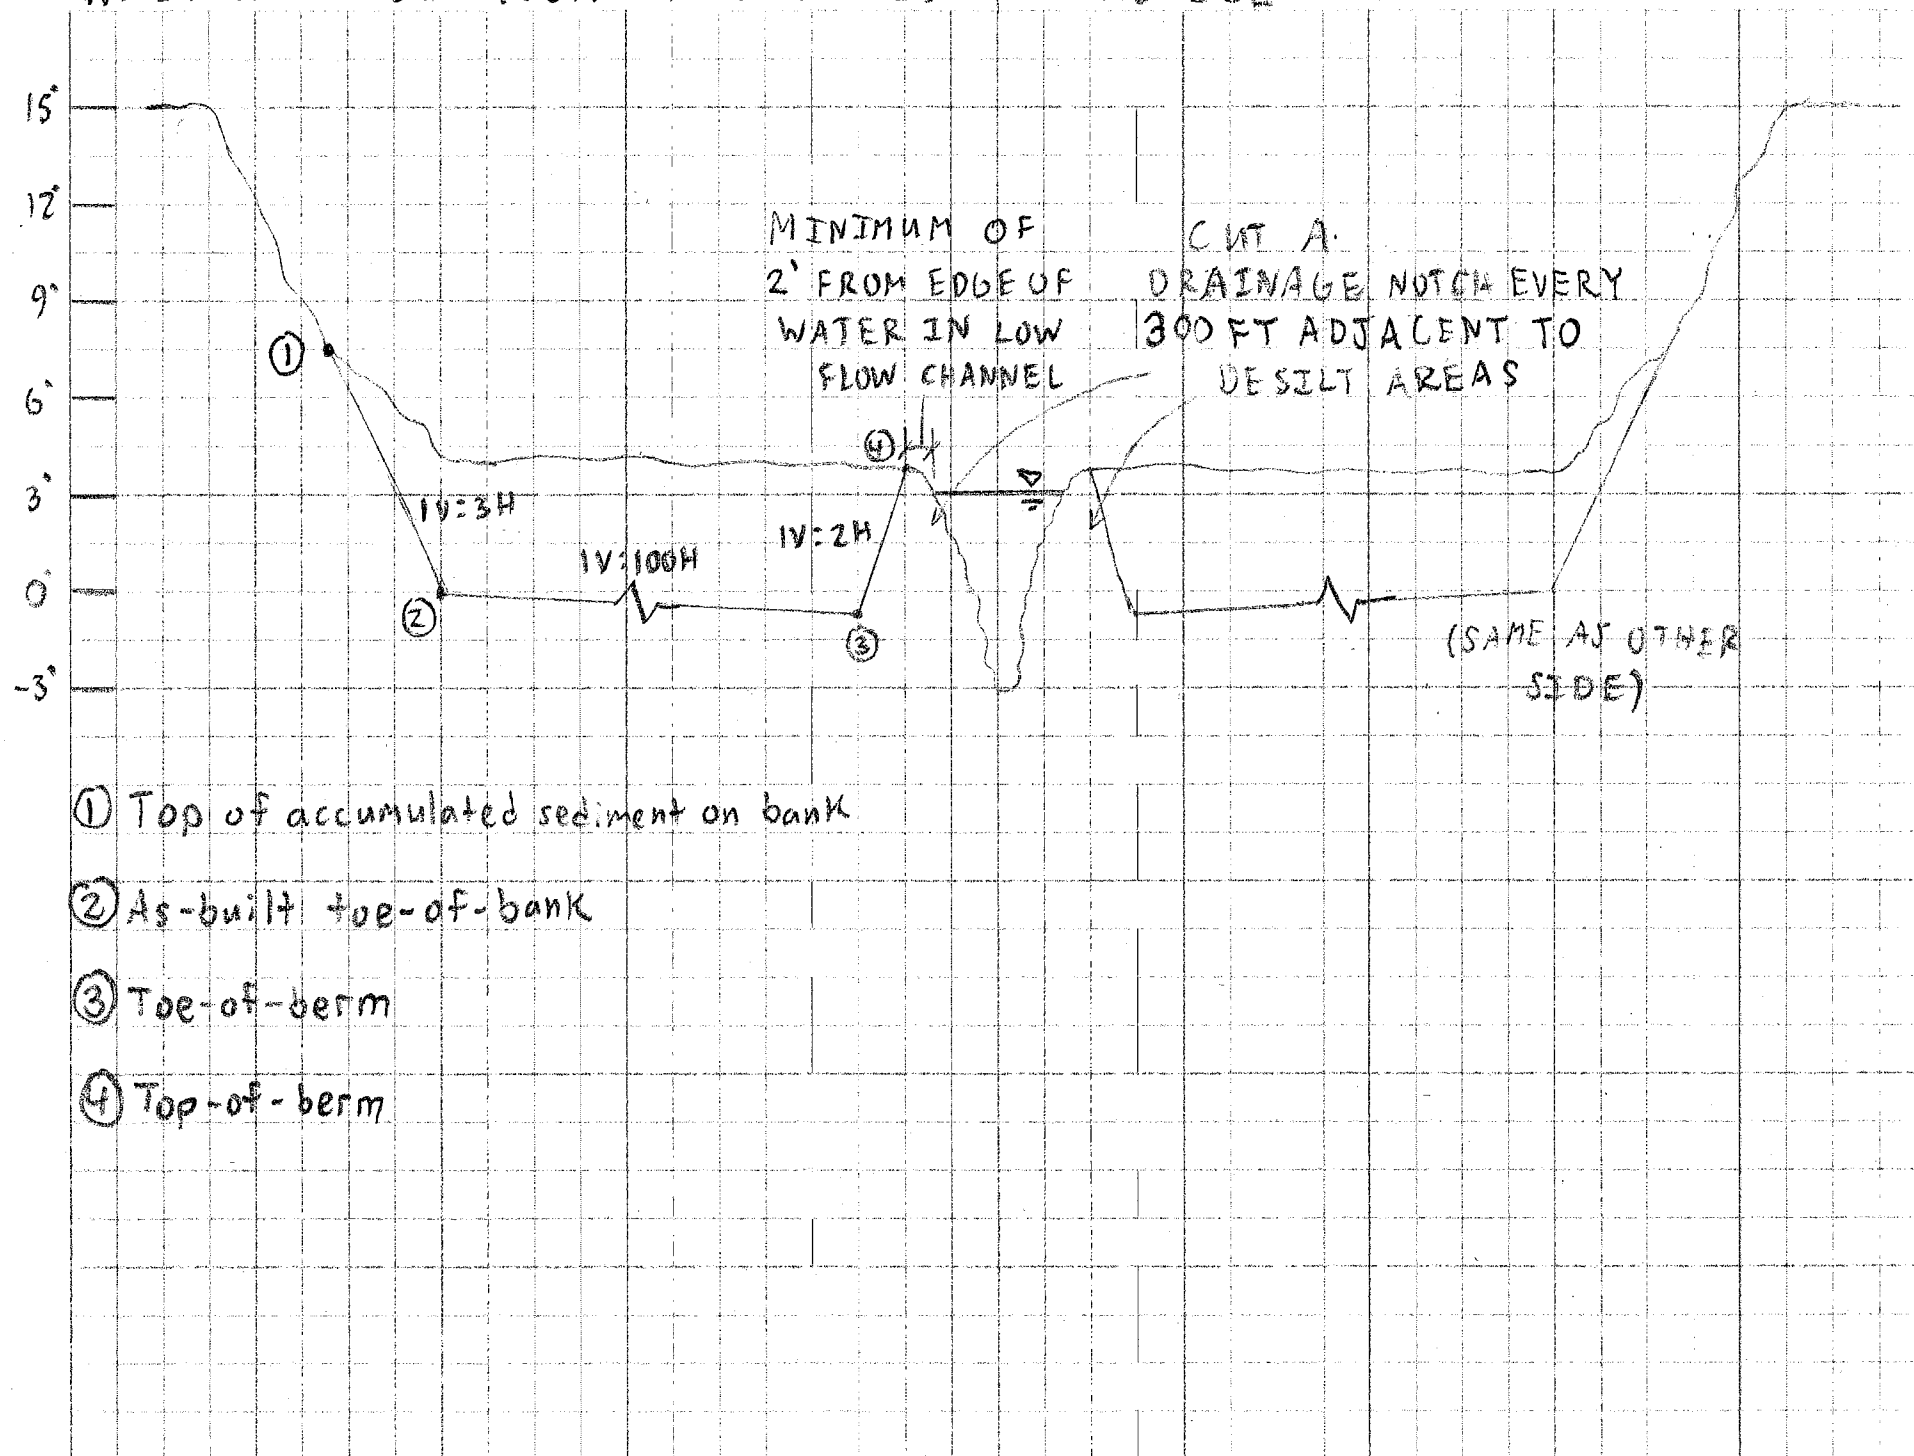 15'
12'
9'
6'
3'
0'
-3'
MINIMUM OF
2' FROM EDGE OF
WATER IN LOW
FLOW CHANNEL
CUT A
DRAINAGE NOTCH EVERY
300 FT ADJACENT TO
DESILT AREAS
1
4
1V:3H
1V:100H
1V:2H
2
3
(SAME AS OTHER
SIDE)
1 Top of accumulated sediment on bank
2 As-built toe-of-bank
3 Toe-of-berm
4 Top-of-berm